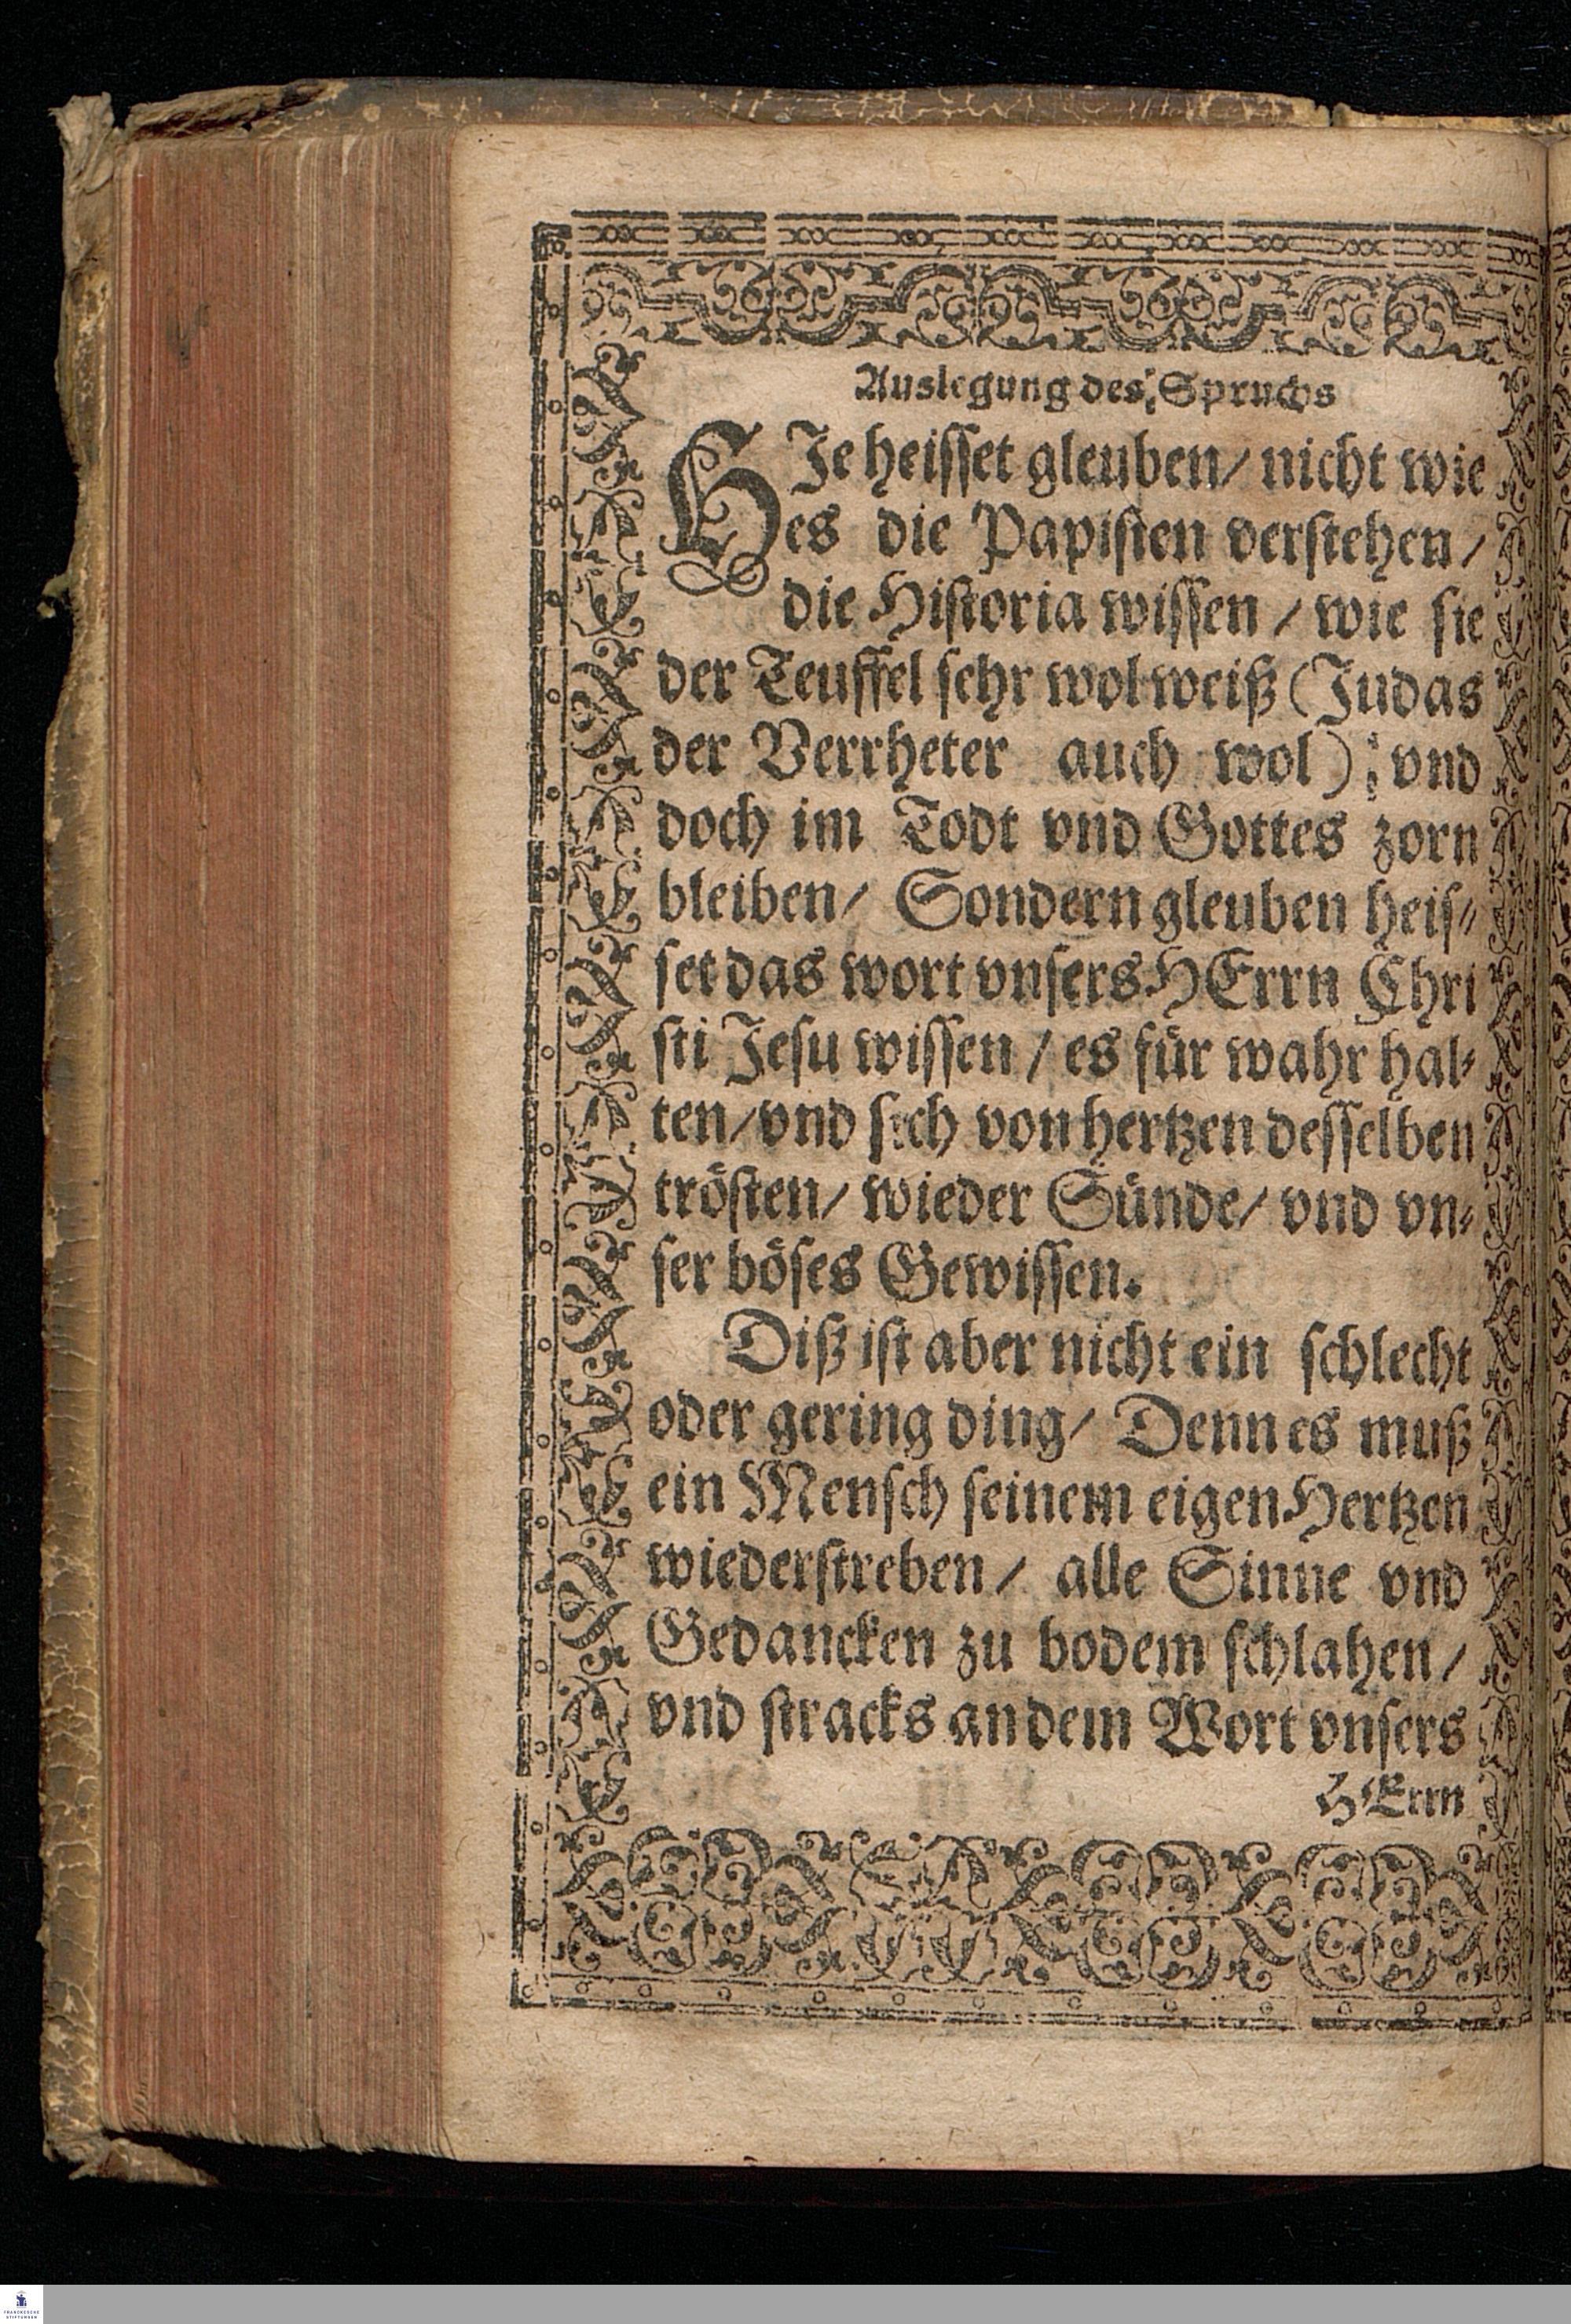 Auslegung des Spruchs
HJe heisset gleuben/ nicht wie
es die Papisten verstehen/
die Historia wissen/ wie sie
der Teuffel sehr wol weiß (Judas
der Verrheter auch wol) vnd
doch im Todt vnd Gottes zorn
bleiben/ Sondern gleuben heis-
set das wort vnsers HErrn Chri
sti Jesu wissen/ es für wahr hal-
ten/ vnd sich von hertzen desselben
trösten/ wieder Sünde/ vnd vn-
ser böses Gewissen.
Diß ist aber nicht ein schlecht
oder gering ding/ Denn es muß
ein Mensch seinem eigen Hertzen
wiederstreben/ alle Sinne vnd
Gedancken zu bodem schlahen/
vnd stracks an dem Wort vnsers
HErrn
FRANCKESCHE
STIFTUNGEN